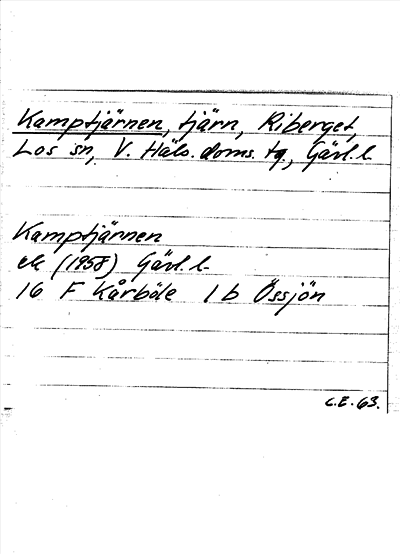 Kamptjärnen, tjärn, Riberget,
Los sn, V. Häls. doms. tg., Gävl. l.
Kamptjärnen
ek (1958) Gävl. l.
16 F Kårböle 1 b Össjön
C.E. 63.